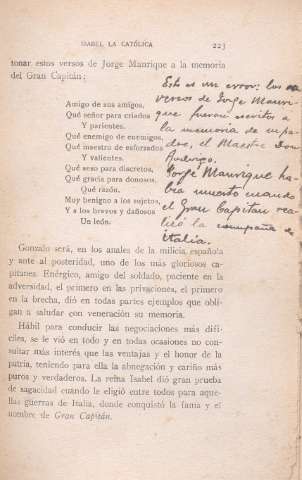 ISABEL LA CATÓLICA
223
tonar estos versos de Jorge Manrique a la memoria
del Gran Capitán:
Amigo de sus amigos,
Qué señor para criados
Y parientes.
Qué enemigo de enemigos,
Qué maestro de esforzados
Y valientes.
Qué seso para discretos,
Qué gracia para donosos,
Qué razón.
Muy benigno a los sujetos,
Y a los brevos y dañosos
Un león.
Esto es un error: los
versos de Jorge Manri-
que fueron escritos a
la memoria de su pa-
dre, el Maestre Don
Rodrigo.
Jorge Manrique ha-
bía muerto cuando
el Gran Capitan rea-
lizó la campaña de
Italia.
Gonzalo será, en los anales de la milicia española
y ante al posteridad, uno de los más gloriosos ca-
pitanes. Enérgico, amigo del soldado, paciente en la
adversidad, el primero en las privaciones, el primero
en la brecha, dió en todas partes ejemplos que obli-
gan a saludar con veneración su memoria.
Hábil para conducir las negociaciones más difí-
ciles, se le vió en todo y en todas ocasiones no con-
sultar más interés que las ventajas y el honor de la
patria, teniendo para ella la abnegación y cariño más
puros y verdaderos. La reina Isabel dió gran prueba
de sagacidad cuando le eligió entre todos para aque-
llas guerras de Italia, donde conquistó la fama y el
nombre de Gran Capitán.